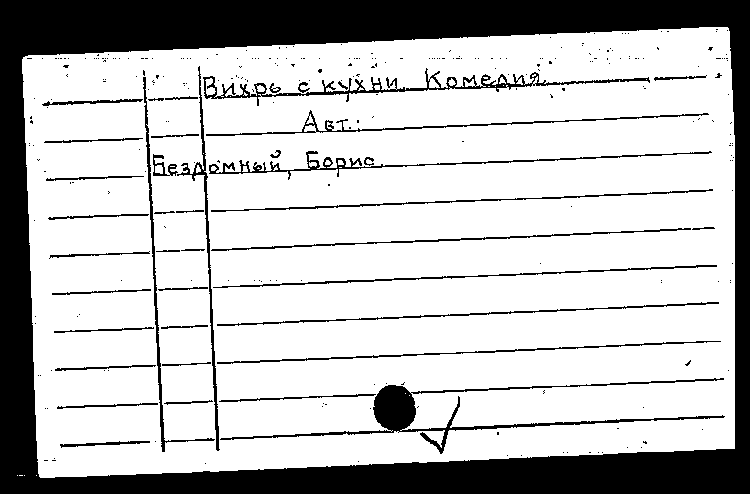 Вихрь с кухни. Комедия.
Авт.:
Бездомный, Борис.